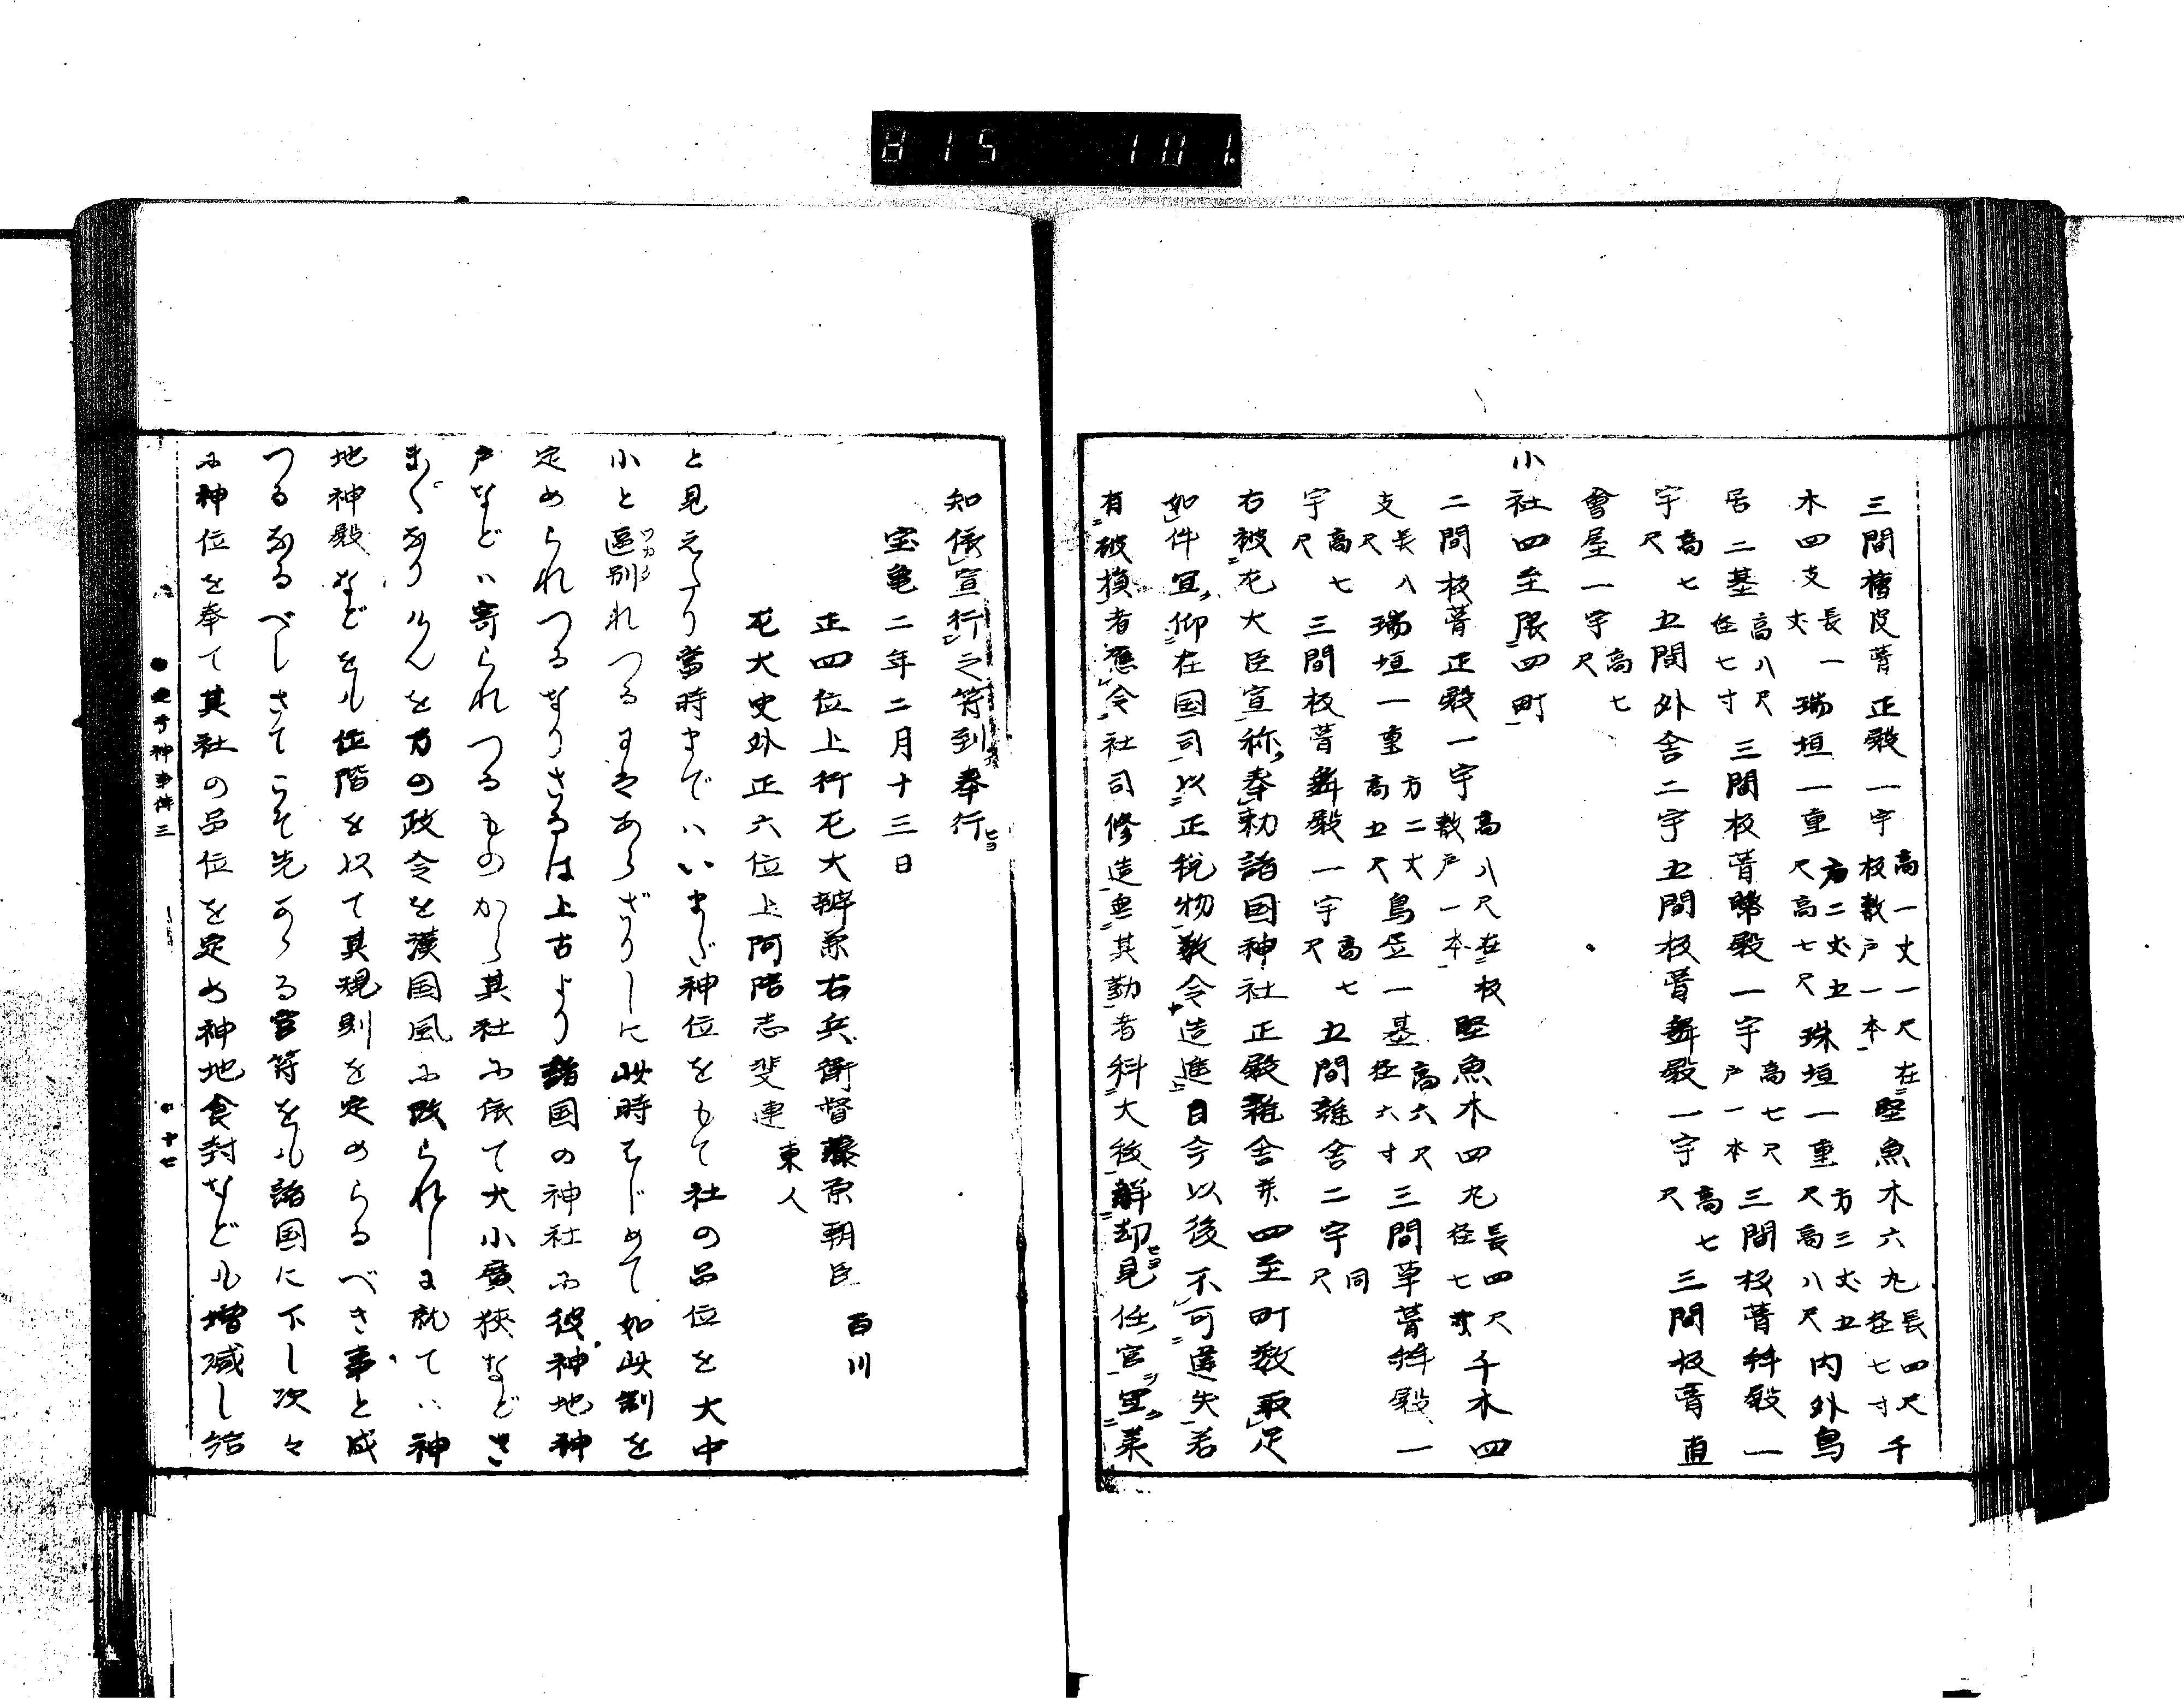 815 101
三間檜皮葺正殿一宇高一丈一尺在板敷戸一本堅魚木六丸長四尺径七寸千
木四支長一丈瑞垣一重方二丈五尺高七尺珠垣一重方三丈五尺高八尺内外鳥
居二基高八尺径七寸三間板葺幣殿一宇高七尺戸一本三間板葺拝殿一
宇高七尺五間外舎二宇五間板葺舞殿一宇高七尺三間板葺直
會屋一宇高七尺
小社四至限四町
二間板葺正殿一宇高八尺在板敷戸一本堅魚木四丸長四尺径七寸千木四
支長八尺瑞垣一重方二丈高五尺鳥居一基高六尺径六寸三間草葺拝殿一
宇高七尺三間板葺舞殿一宇高七尺五間雑舎二宇同尺
右被左大臣宣称奉勅諸国神社正殿雑舎并四至町数取足
如件宜仰在国司以正税物数令造進自今以後不可違失若
有破損者應令社司修造無其勤者科大祓解却見任官宜業
知依宣行之符到奉行
宝亀二年二月十三日
正四位上行左大辨兼右兵衛督藤原朝臣百川
左大史外正六位上阿陪志斐連東人
と見えたり當時まではいまだ神位をもて社の品位を大中
小と區別れつる事はあらざりしに此時はじめて如此制を
定められつるなりさるは上古より諸国の神社に彼神地神
戸などハ寄られつるものから其社に依て大小廣狭などさ
まざまなりけんを万の政令を漢国風に改られしに就てハ神
地神殿などをも位階を以て其規則を定めらるべき事と成
つるなるべしさてこそ先かかる官符をも諸国に下し次々
に神位を奉て其社の品位を定め神地食封なども増減し給
神事件三
十七